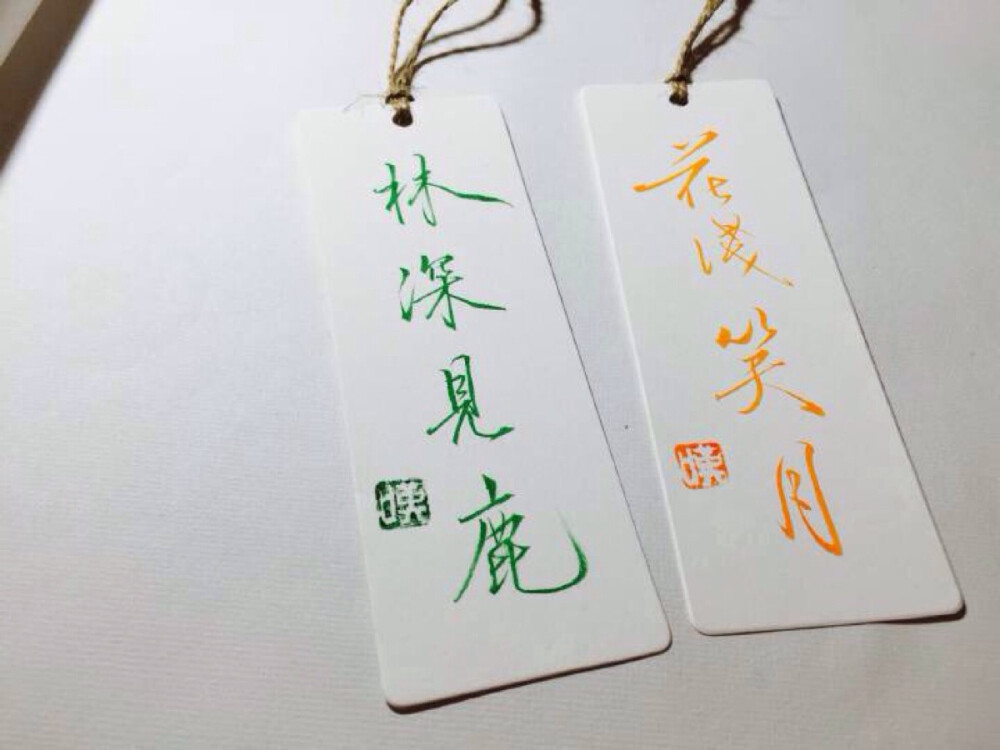 林深見鹿
花淺笑月